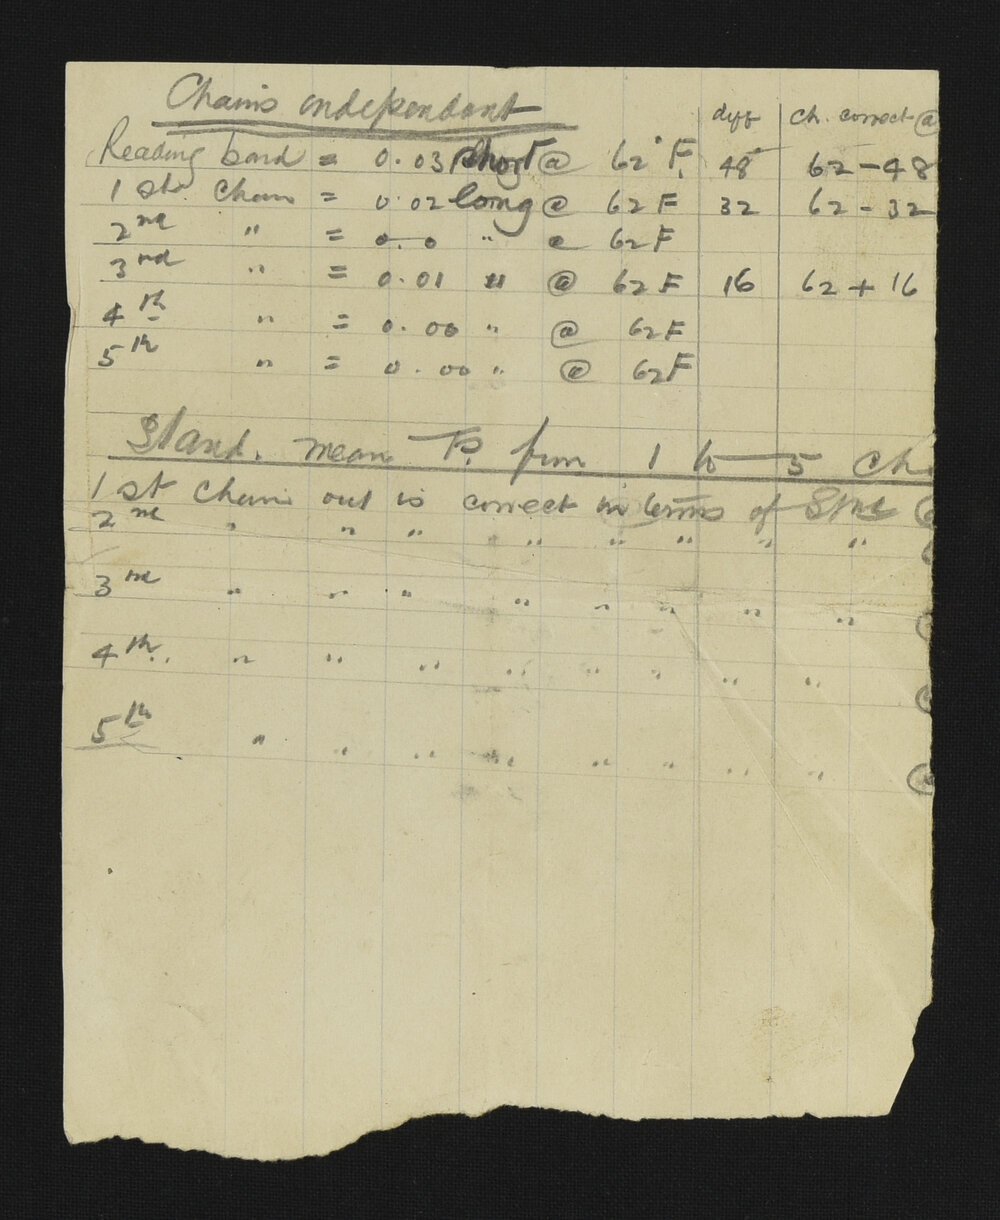 Chains independent diff Ch. correct @
Reading band = 0.03 short @ 62° F. 48 62 - 48
1 st. chain = 0.02 long @ 62 F 32 62 - 32
2nd " = 0.0 " @ 62 F
3rd " = 0.01 " @ 62 F 16 62 + 16
4th " = 0.00 " @ 62 F
5th " = 0.00 " @ 62 F
Stand. mean from 1 to 5 Ch
1 st chain out is correct in terms of
2nd " " " " " " " "
3rd " " " " " " " "
4th " " " " " " " " "
5th " " " " " " " "